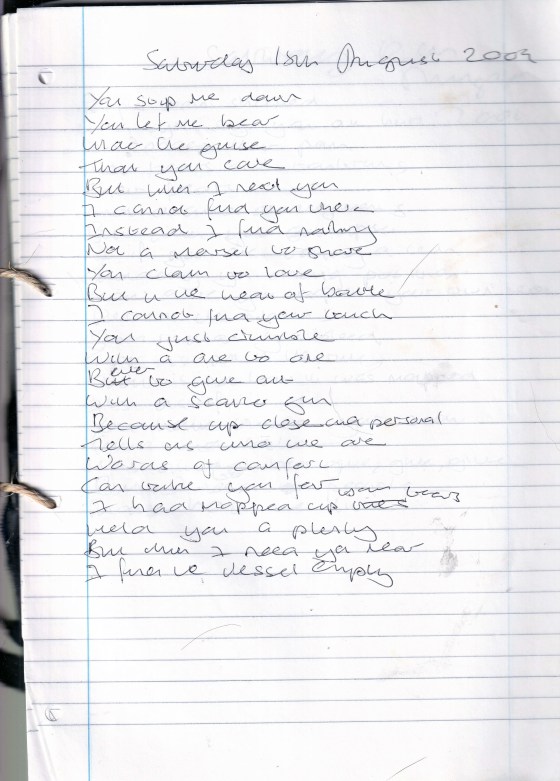 Saturday 18th August 2009
You let me
the guise
That you care
But when I need you
I cannot find you there
Instead I find nothing
Not a morsel to share
You claim to love
But in the heat of battle
I cannot find your touch
You just
With a one to one
But ever to give out
With a scatter gun
Because up close and personal
Tells us who we are
Words of comfort
Can take you far
I had mopped up your tears
Held you a plenty
But when I need you near
I find the vessel empty